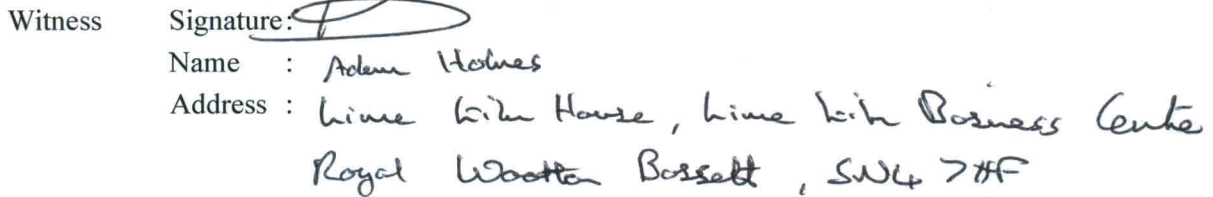 Witness Signature:
Name : Adam Holmes
Address : Lime Kiln House, Lime Kiln Business Centre
Royal Wootton Bassett, SN4 7HF